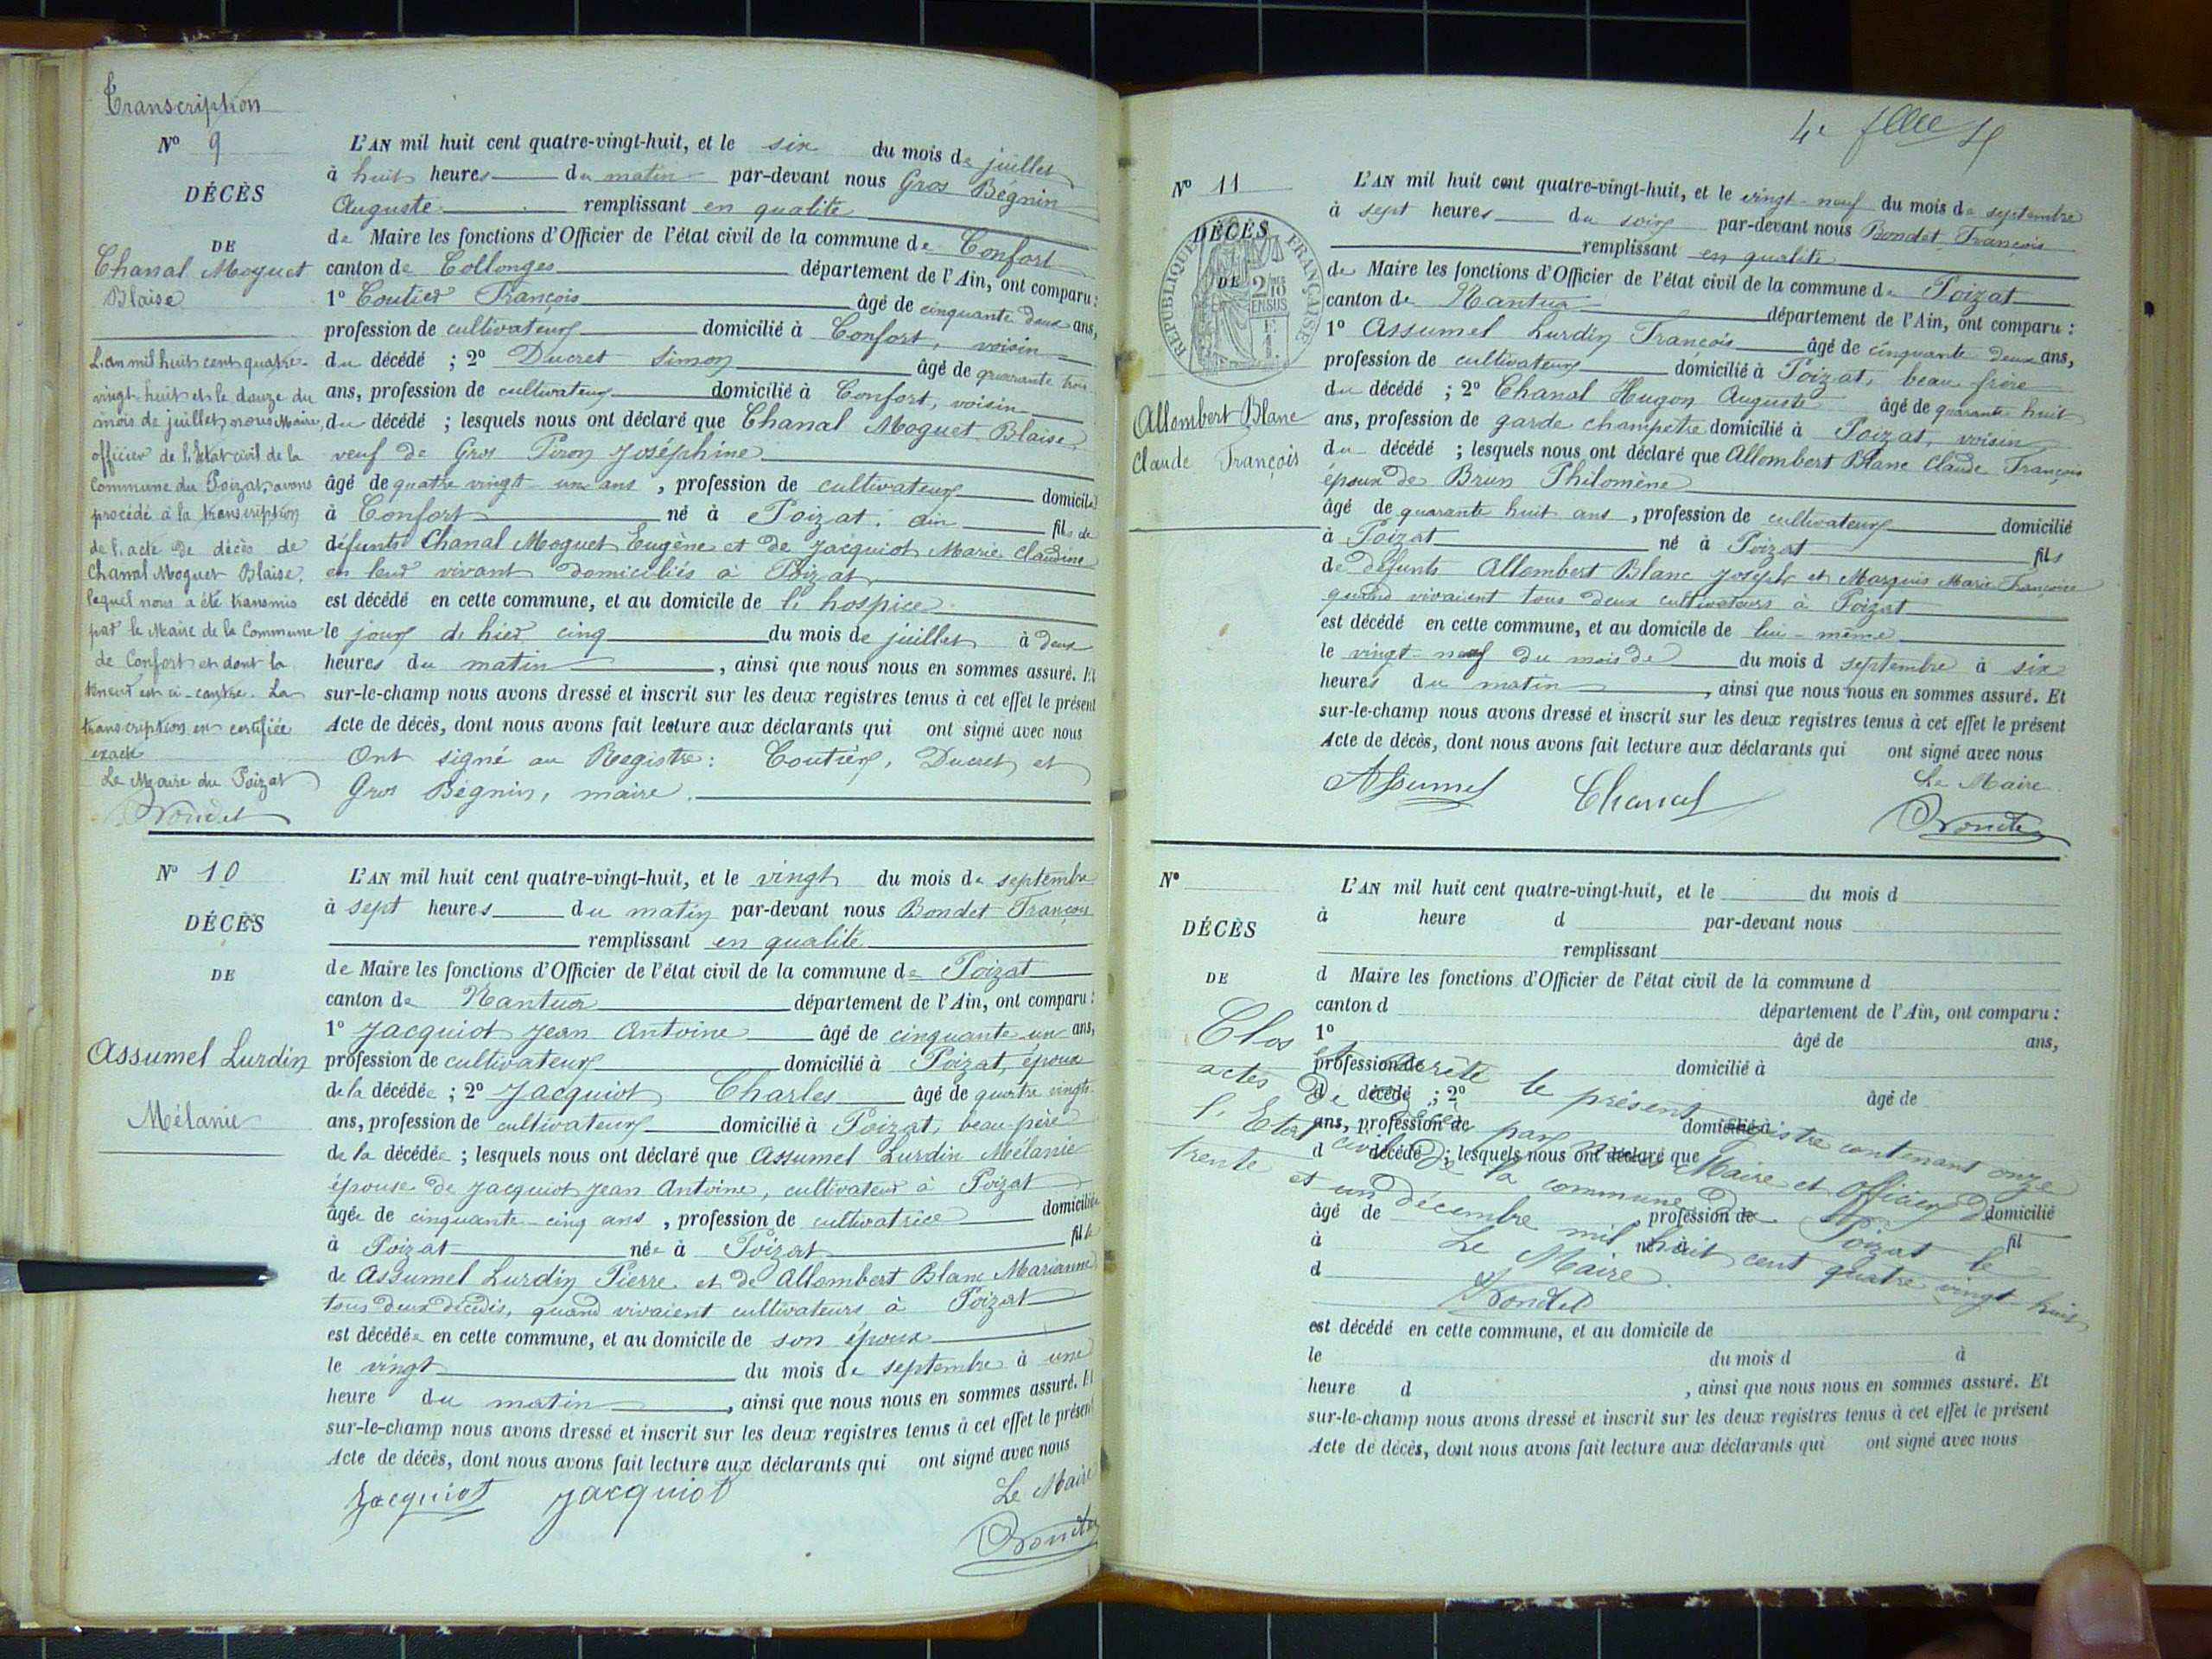 Transcription
N° 9
DÉCÈS
DE
Chanal Moguet
Blaise
L'an mil huit cent quatre-
vingt-huit et le douze du
mois de juillet, nous Maire,
officier de l'Etat civil de la
Commune du Poizat, avons
procédé à la transcription
de l'acte de décès de
Chanal Moguet Blaise,
lequel nous a été transmis
par le Maire de la Commune
de Confort et dont la
teneur est ci-contre. La
transcription est certifiée
exacte
Le Maire du Poizat
Bondet
L'AN mil huit cent quatre-vingt-huit, et le six du mois de juillet
à huit heures du matin par-devant nous Gros Bégnin
Auguste remplissant en qualité
de Maire les fonctions d'Officier de l'état civil de la commune de Confort
canton de Collonges département de l'Ain, ont comparu :
1° Coutier François âgé de cinquante deux ans,
profession de cultivateur domicilié à Confort, voisin
du décédé ; 2° Ducret Simon âgé de quarante trois
ans, profession de cultivateur domicilié à Confort, voisin
du décédé ; lesquels nous ont déclaré que Chanal Moguet Blaise
veuf de Gros Piron Joséphine
âgé de quatre vingt un ans, profession de cultivateur domicilié
à Confort né à Poizat, ain fils de
défunts Chanal Moguet Eugène et de Jacquiot Marie Claudine
en leur vivant domiciliés à Poizat
est décédé en cette commune, et au domicile de l'hospice
le jour de hier cinq du mois de juillet à deux
heures du matin, ainsi que nous nous en sommes assuré. Et
sur-le-champ nous avons dressé et inscrit sur les deux registres tenus à cet effet le présent
Acte de décès, dont nous avons fait lecture aux déclarants qui ont signé avec nous
Ont signé au Registre : Coutier, Ducret et
Gros Bégnin, maire.
N° 10
DÉCÈS
DE
Assumel Lurdin
Mélanie
L'AN mil huit cent quatre-vingt-huit, et le vingt du mois de septembre
à sept heures du matin par-devant nous Bondet François
remplissant en qualité
de Maire les fonctions d'Officier de l'état civil de la commune de Poizat
canton de Nantua département de l'Ain, ont comparu :
1° Jacquiot Jean Antoine âgé de cinquante un ans,
profession de cultivateur domicilié à Poizat, époux
de la décédée ; 2° Jacquiot Charles âgé de quatre vingts
ans, profession de cultivateur domicilié à Poizat, beau-père
de la décédée ; lesquels nous ont déclaré que Assumel Lurdin Mélanie
épouse de Jacquiot Jean Antoine, cultivateur à Poizat
âgée de cinquante-cinq ans, profession de cultivatrice domiciliée
à Poizat née à Poizat fille
de Assumel Lurdin Pierre et de Allombert Blanc Marianne
tous deux décédés, quand vivaient cultivateurs à Poizat
est décédée en cette commune, et au domicile de son époux
le vingt du mois de septembre à une
heure du matin, ainsi que nous nous en sommes assuré. Et
sur-le-champ nous avons dressé et inscrit sur les deux registres tenus à cet effet le présent
Acte de décès, dont nous avons fait lecture aux déclarants qui ont signé avec nous
Jacquiot Jacquiot Le Maire
Bondet
4e flle
N° 11
DÉCÈS
DE
RÉPUBLIQUE FRANÇAISE
2/10 EN SUS
Allombert Blanc
Claude François
L'AN mil huit cent quatre-vingt-huit, et le vingt-neuf du mois de septembre
à sept heures du soir par-devant nous Bondet François
remplissant en qualité
de Maire les fonctions d'Officier de l'état civil de la commune de Poizat
canton de Nantua département de l'Ain, ont comparu :
1° Assumel Lurdin François âgé de cinquante deux ans,
profession de cultivateur domicilié à Poizat, beau frère
du décédé ; 2° Chanal Hugon Auguste âgé de quarante huit
ans, profession de garde champetre domicilié à Poizat, voisin
du décédé ; lesquels nous ont déclaré que Allombert Blanc Claude François
époux de Brun Philomène
âgé de quarante huit ans, profession de cultivateur domicilié
à Poizat né à Poizat fils
de défunts Allombert Blanc Joseph et Marquis Marie Françoise
quand vivaient tous deux cultivateurs à Poizat
est décédé en cette commune, et au domicile de lui-même
le vingt-neuf du mois de du mois d septembre à six
heures du matin, ainsi que nous nous en sommes assuré. Et
sur-le-champ nous avons dressé et inscrit sur les deux registres tenus à cet effet le présent
Acte de décès, dont nous avons fait lecture aux déclarants qui ont signé avec nous
Assumel Chanal Le Maire
Bondet
N°
DÉCÈS
DE
L'AN mil huit cent quatre-vingt-huit, et le du mois d
à heure d par-devant nous
remplissant
d Maire les fonctions d'Officier de l'état civil de la commune d
canton d département de l'Ain, ont comparu :
1° âgé de ans,
profession de domicilié à
d décédé ; 2° âgé de
ans, profession de domicilié à
d décédé ; lesquels nous ont déclaré que
âgé de profession de domicilié
à né à fil
d
est décédé en cette commune, et au domicile de
le du mois d à
heure d , ainsi que nous nous en sommes assuré. Et
sur-le-champ nous avons dressé et inscrit sur les deux registres tenus à cet effet le présent
Acte de décès, dont nous avons fait lecture aux déclarants qui ont signé avec nous
Clos et arrêté le présent registre contenant onze
actes de décès par nous Maire et Officier de
l'Etat civil de la commune du Poizat le
trente et un décembre mil huit cent quatre vingt huit
Le Maire.
Bondet